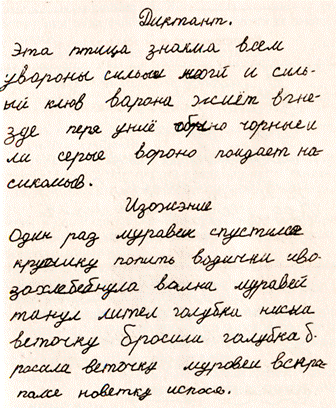 Диктант.
Эта птица знакма всем
увароны сильые ноги и силь-
ый клюв варона жиёт вгне-
зде перя униё обыно чорные и
ли серые вороно поидает на-
сикомыв.
Изожэние
Один раз муравек спустился
кручику попить водички иво-
захлебебнула валка муравей
танул лител голубка нисла
веточку бросила голубка б.
расила веточку муровеи вскра-
палсе новетку испося.